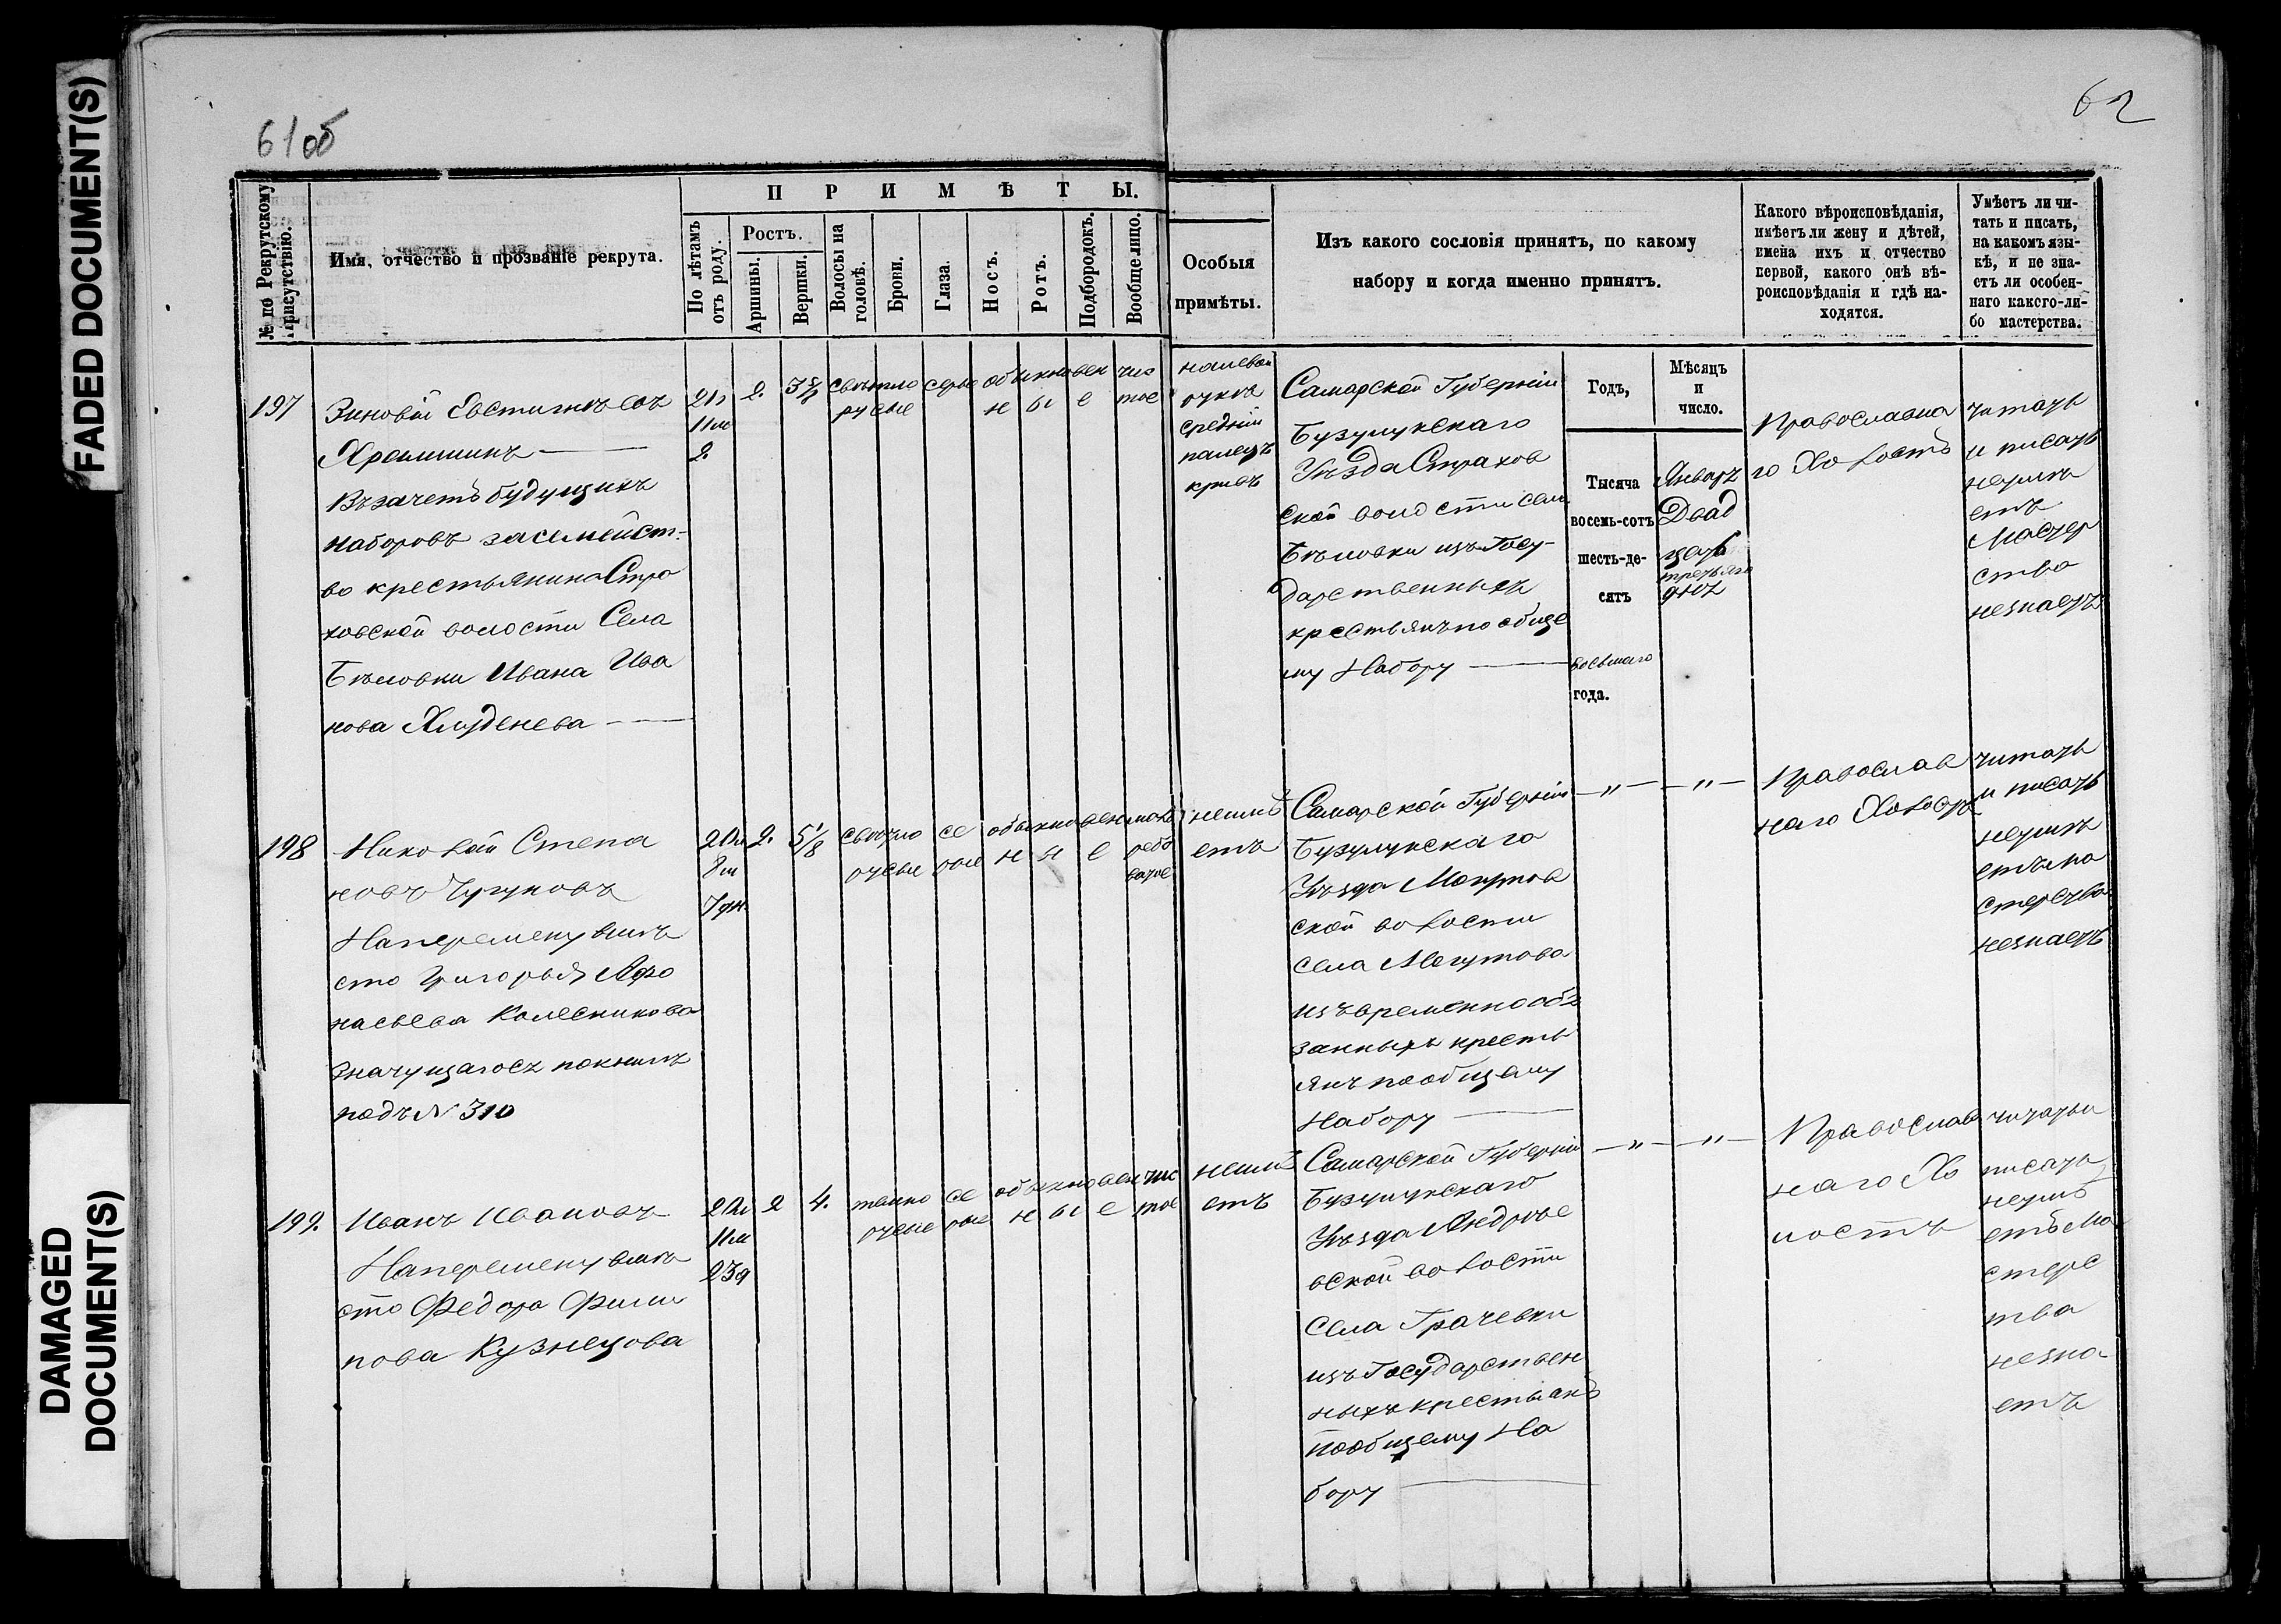 FADED DOCUMENT(S)
DAMAGED
DOCUMENT(S)
61об
62
№ по Рекрутскому
Присутствію.
Имя, отчество и прозваніе рекрута.
ПРИМѢТЫ.
По лѣтамъ
отъ роду.
Ростъ.
Аршины.
Вершки.
Волосы на
головѣ.
Брови.
Глаза.
Носъ.
Ротъ.
Подбородокъ.
Вообще лицо.
Особыя
примѣты.
Изъ какого сословія принятъ, по какому
набору и когда именно принятъ.
Какого вѣроисповѣданія,
имѣетъ ли жену и дѣтей,
имена ихъ и отчество
первой, какого онѣ вѣ-
роисповѣданія и гдѣ на-
ходятся.
Умѣетъ ли чи-
тать и писать,
на какомъ язы-
кѣ, и не зна-
етъ ли особен-
наго какого-ли-
бо мастерства.
197
Зиновій Евстигнѣевъ
Въ зачетъ будущихъ
наборовъ за семейст-
во крестьянина Стра
ховской волости Села
Бѣловки Ивана Ива
нова
21л
11м
2.
2.
свѣтло
русые
серые
обыкновен
ные
чис
тое
налевой
рукѣ
средній
палецъ
кривъ
Самарской Губерніи
Бузулукскаго
Уѣзда Страхов
ской волости села
Бѣловки изъ Госу-
дарственныхъ
крестьянъ по обще
му Набору
Годъ,
Мѣсяцъ
и
число.
Тысяча
восемь-сотъ
шесть-де-
сятъ
восьмаго
года.
Январъ
Двад
цать
третьяго
дня
Православна
го Холостъ
читать
и писать
неумѣ
етъ
Мастер
ства
незнаетъ
198
Николай Степа
новъ Чугуновъ
Наперемену вмѣ
сто Григорья Афо
насьева Колесникова
значущагося по книгѣ
подъ № 310
20л
8м
7дн.
2.
5 1/8
светло
русые
се
рые
обыкновен
ные
неимѣ
етъ
Самарской Губерніи
Бузулукскаго
Уѣзда Могутов
ской волости
села Могутова
изъ временнообя
занныхъ кресть
янъ по общему
Набору
— „ —
— „ —
Православ
наго Холостъ
читать
и писать
неумѣ
етъ ма
стерства
незнаетъ
199.
Иванъ Ивановъ
Наперемену вмѣ
сто Федора Фили
пова Кузнецова
22л
11м
23д
2
4.
темно
русые
се
рые
обыкновен
ные
чис
тое
неимѣ
етъ
Самарской Губерніи
Бузулукскаго
Уѣзда Андрѣе
вской волости
села Грачевки
изъ Государствен
ныхъ крестьянъ
по общему На
бору
— „ —
— „ —
Православ
наго Хо
лостъ
читать и
писать
неумѣ
етъ Ма
стерс
тва
незна
етъ